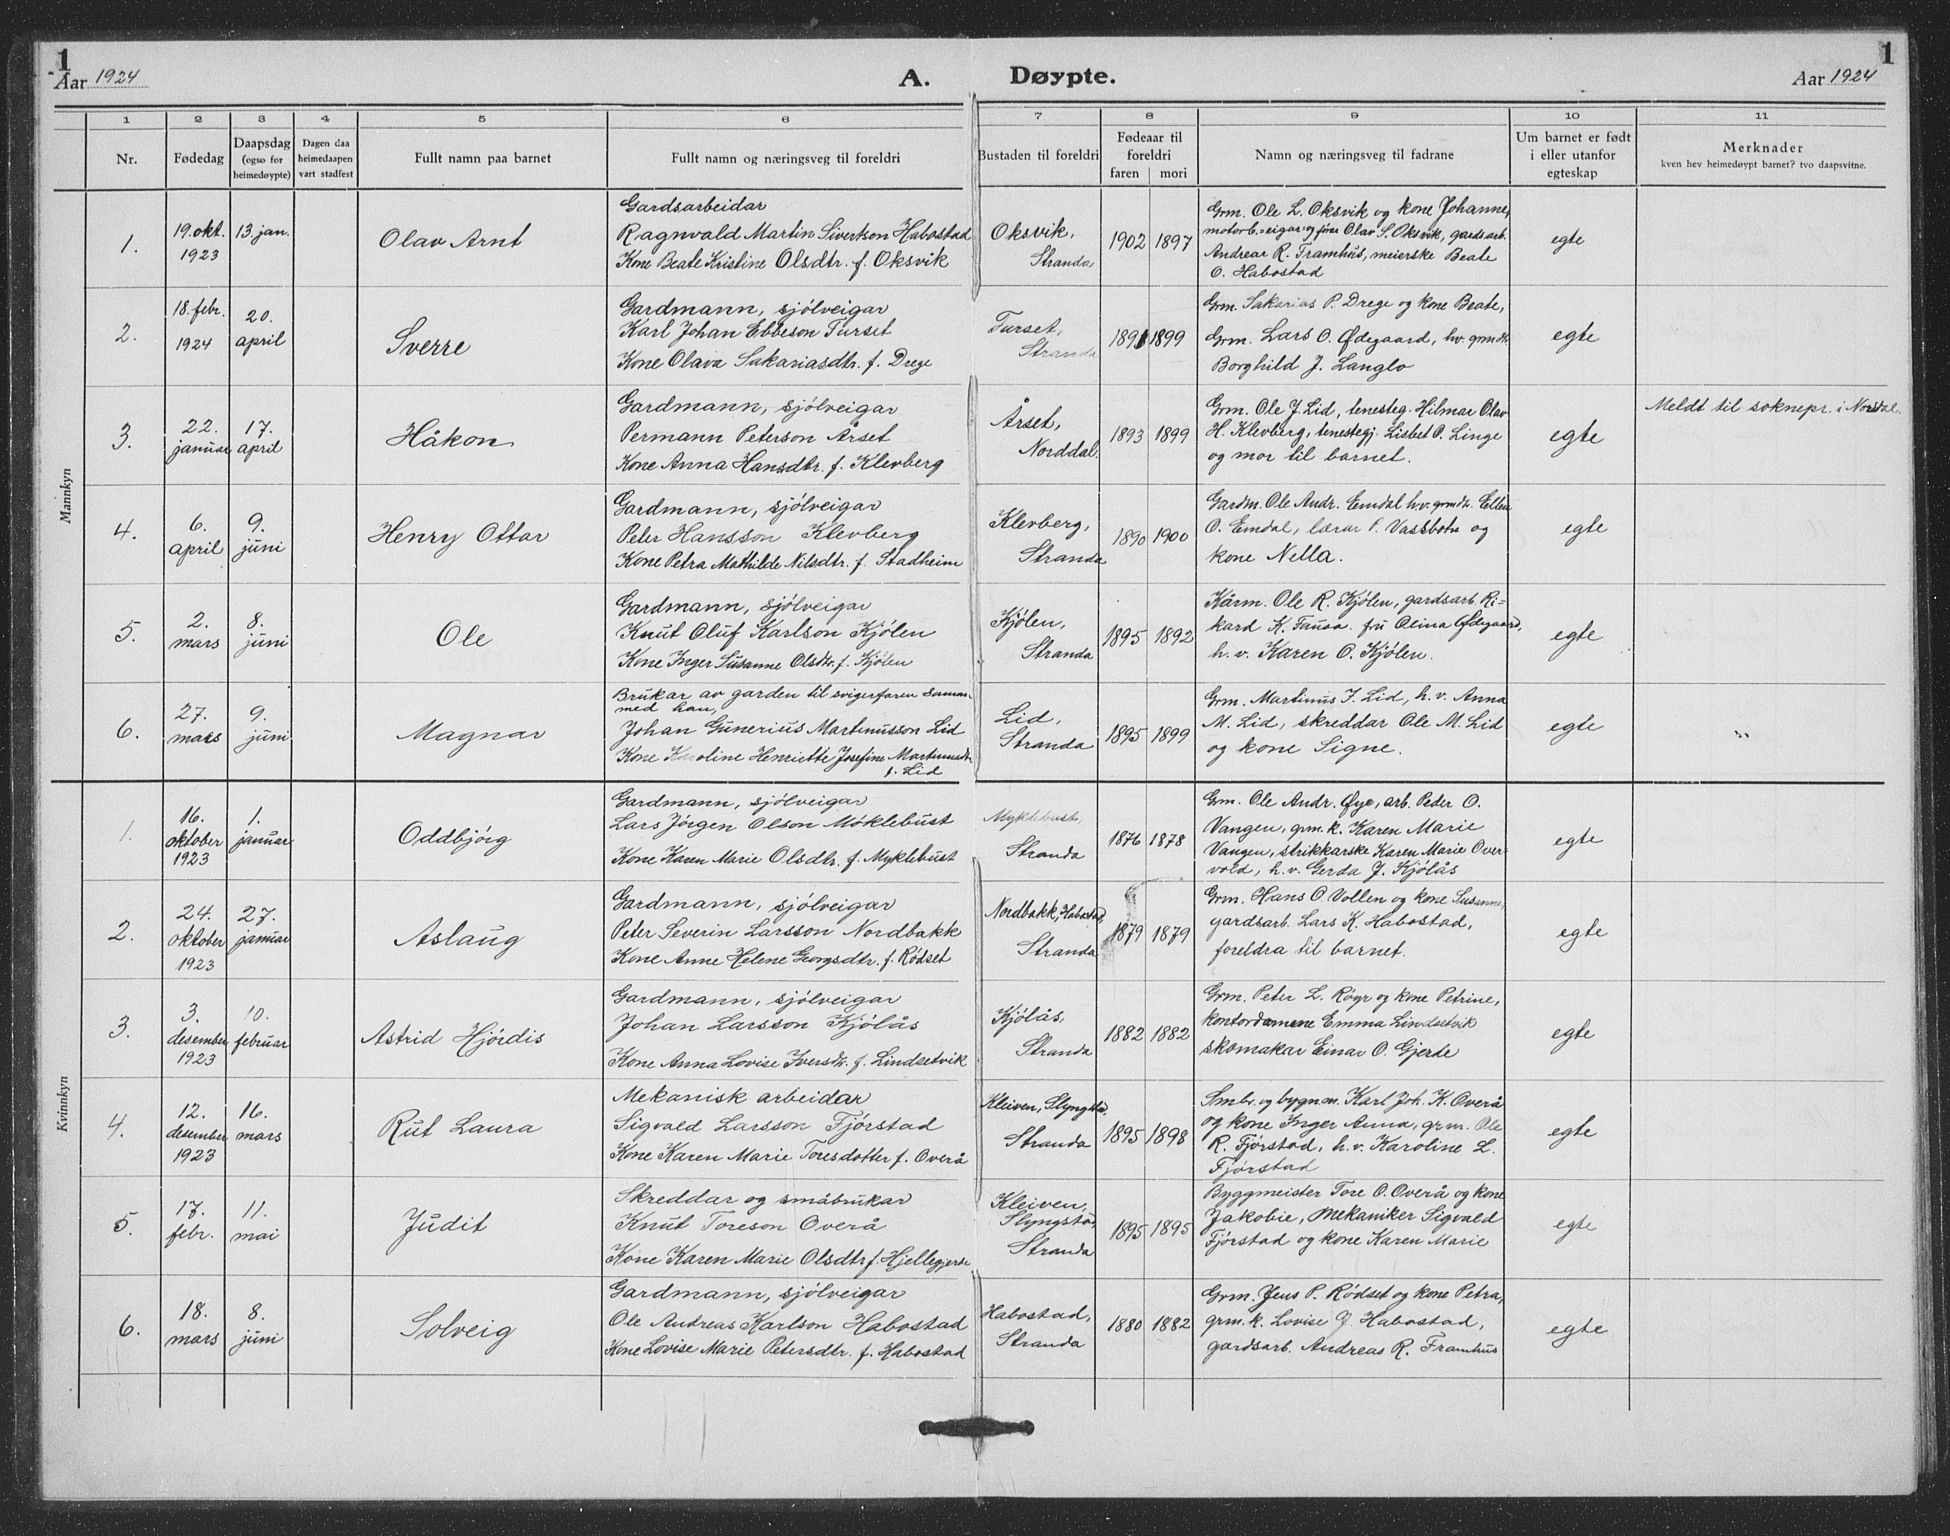 1
Aar 1924
A. Døypte.
1
Aar 1924
1 2 3 4 5 6 7 8 9 10 11
Nr.
Fødedag
Daapsdag
(ogso for
heimedøypte)
Dagen daa
heimedaapen
vart stadfest
Fullt namn paa barnet
Fullt namn og næringsveg til foreldri
Bustaden til foreldri
Fødeaar til
foreldri
faren mori
Namn og næringsveg til fadrane
Um barnet er født
i eller utanfor
egteskap
Merknader
kven hev heimedøypt barnet? tvo daapsvitne.
Mannkyn
1.
19. okt.
1923
13. jan.
Olav Arnt
Gardsarbeidar
Ragnvald Martin Sivertson Habostad
Kone Beate Kristine Olsdtr. f. Oksvik
Oksvik,
Stranda
1902 1897
Grm. Ole L. Oksvik og kone Johanne,
motorb.-eigar og förar Olav S. Oksvik, gardsarb.
Andreas R. Framhus, meierske Beate
O. Habostad
egte
2.
18. febr.
1924
20.
april
Sverre
Gardmann, sjölveigar
Karl Johan Ebbeson Furset
Kone Olava Sakariasdtr. f. Drege
Furset,
Stranda
1891 1899
Grm. Sakarias P. Drege og kone Beate,
Grm. Lars O. Ödegaard, hv. grmdt.
Borghild J. Langlo
egte
3.
22.
januar
17.
april
Håkon
Gardmann, sjölveigar
Permann Peterson Årset
Kone Anna Hansdtr. f. Klevberg
Årset,
Norddal.
1893 1899
Grm. Ole J. Lid, tenesteg. Hilmar Olav
H. Klevberg, tenestegj. Lisbet O. Linge
og mor til barnet.
egte
Meldt til soknepr. i Norddal.
4.
6.
april
9.
juni
Henry Ottar
Gardmann, sjölveigar
Peter Hansson Klevberg
Kone Petra Mathilde Nilsdtr. f. Stadheim
Klevberg,
Stranda
1890 1900
Gardm. Ole Andr. Emdal h.v. grmdt. Ellen
O. Emdal, lærar P. Vassbotn og
kone Nella.
egte
5.
2.
mars
8.
juni
Ole
Gardmann, sjölveigar
Knut Oluf Karlson Kjölen
Kone Inger Susanne Olsdtr. f. Kjölen
Kjölen,
Stranda
1895 1892
Kårm. Ole R. Kjölen, gardsarb. Ri-
kard K. Tausa. fru Olina Ödegaard,
h. v. Karen O. Kjölen.
egte
6.
27.
mars
9.
juni
Magnar
Brukar av garden til svigerfaren saman
med han,
Johan Gunerius Martinusson Lid
Kone Karoline Henriette Josefine Martinusdtr.
f. Lid
Lid,
Stranda
1895 1899
Grm. Martinus I. Lid, h. v. Anna
M. Lid, skreddar Ole M. Lid
og kone Signe.
egte
Kvinnkyn
1.
16.
oktober
1923
1.
januar
Oddbjörg
Gardmann, sjölveigar
Lars Jörgen Olson Möklebust
Kone Karen Marie Olsdtr. f. Myklebust
Myklebust,
Stranda
1876 1878
Grm. Ole Andr. Öye, arb. Peder O.
Vangen, grm.k. Karen Marie
Vangen, strikkarske Karen Marie Over-
vold, h. v. Gerda J. Kjölås
egte
2.
24.
oktober
1923
27.
januar
Aslaug
Gardmann, sjölveigar
Peter Severin Larsson Nordbakk
Kone Anne Helene Georgsdtr. f. Rödset
Nordbakk, Habostad,
Stranda
1879 1879
Grm. Hans O. Vollen og kone Susanne,
gardsarb. Lars K. Habostad,
foreldra til barnet.
egte
3.
3.
desember
1923
10.
februar
Astrid Hjördis
Gardmann, sjölveigar
Johan Larsson Kjölås
Kone Anna Lovise Iversdtr. f. Lindsetvik
Kjölås,
Stranda
1882 1882
Grm. Peter L. Röyr og kone Petrine,
kontordamene Emma Lindsetvik
skomakar Einar O. Gjerde
egte
4.
12.
desember
1923
16.
mars
Rut Laura
Mekanisk arbeidar
Sigvald Larsson Fjörstad
Kone Karen Marie Toresdotter f. Overå
Kleiven, Slyngstö,
Stranda
1895 1898
Smbr. og bygnm. Karl Joh. K. Overå
og kone Inger Anna, grm. Ole
R. Fjörstad, h. v. Karoline L.
Fjörstad
egte
5.
17.
febr.
11.
mai
Judit
Skreddar og småbrukar
Knut Toreson Overå
Kone Karen Marie Olsdtr f. Hjellegjerde
Kleiven,
Slyngstö,
Stranda
1895 1895
Byggmeister Tore O. Overå og kone
Jakobie, mekaniker Sigvald
Fjörstad og kone Karen Marie
egte
6.
18.
mars
8.
juni
Solveig
Gardmann, sjölveigar
Ole Andreas Karlson Habostad
Kone Lovise Marie Petersdtr. f. Habostad
Habostad,
Stranda
1880 1882
Grm. Jens P. Rödset og kone Petra,
grm.k. Lovise J. Habostad,
gardsarb. Andreas R. Framhus
egte